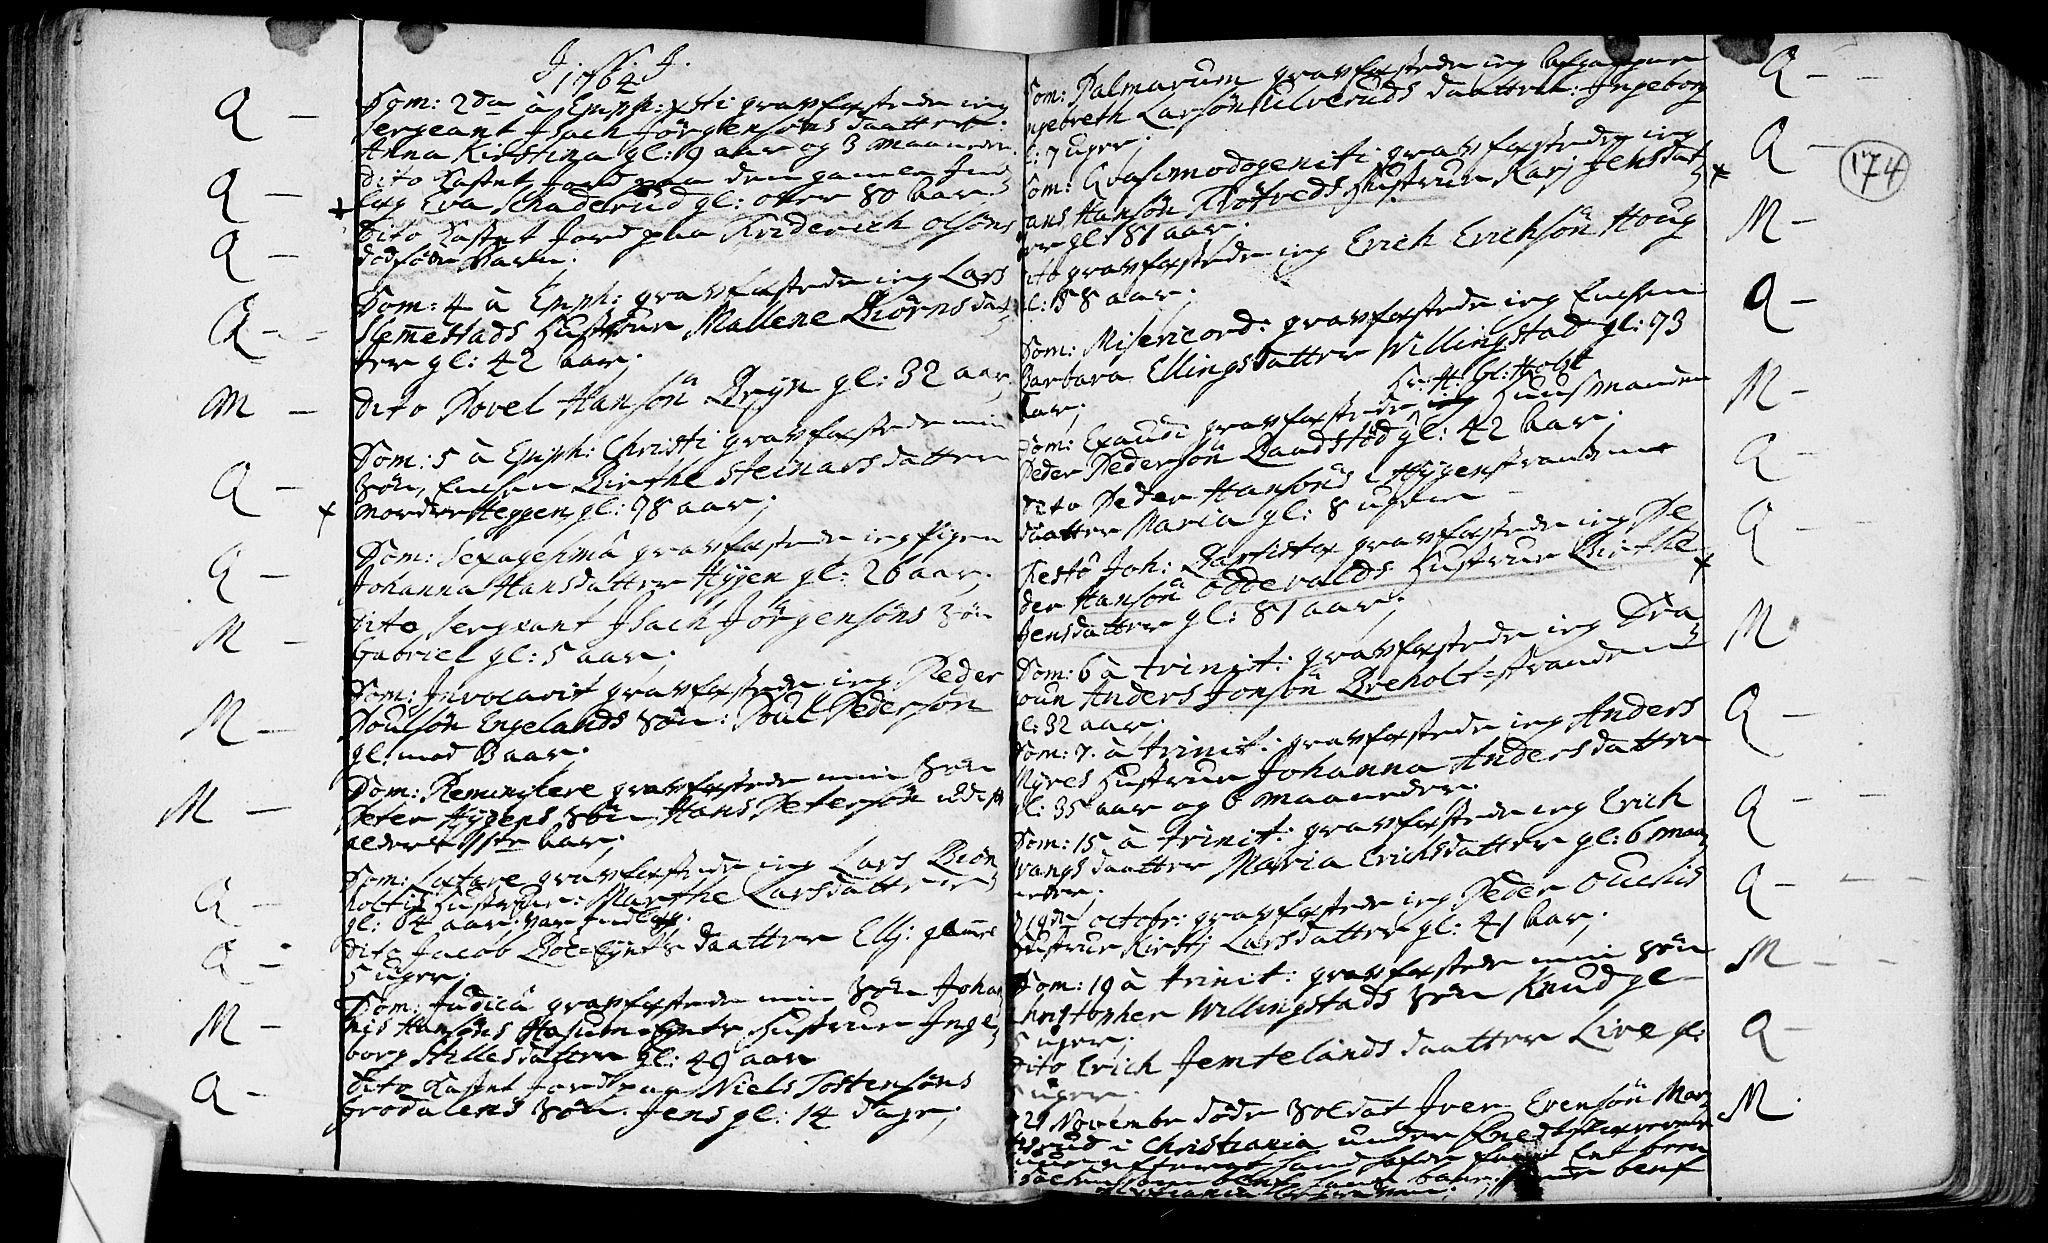 J. N. J.
1764
Dom: 2da à Epiph: xsti gravfæstede ieg
Sergeant Jsach Jörgensöns daatter:
Anna Kirstina gl: 9 aar og 3 maaneder.
dito kastet Jord paa den gamle Ind
læg Eva Schaderud gl: over 80 aar.
Dito kastet Jord paa Friderich Olsöns
dödföde Barn.
Dom: 4 à Epiph: gravfæstede ieg Lars
Slemestads Hustrue Mallene Biörnsdat
ter gl: 42 aar;
dito Povel Hansön Bryn gl: 32 aar.
Dom: 5 à Epiph: Christi gravfæstede min
Sön, Enchen Birthe Steinarsdatter
nordre Heggen gl: 78 aar;
Dom: Sexagesima gravfæstede ieg Pigen
Johanna Hansdatter Hÿgen gl: 26 aar;
Dito Sergeant Jsach Jörgensöns Sön
Gabriel gl: 5 aar;
Dom: Invocavit gravfæstede ieg Peder
Poulsön Engelands Sön: Poul Pedersön
gl: mod 3 aar;
Dom: Reminiscere gravfæstede min Sön
Peter Hÿgens Sön Hans Petersön udi sit
alders 11ste aar;
Dom: Lætare gravfæstede ieg Lars Biön
holtes Hustrue: Marthe Larsdatter
gl: 64 aar: var Indlæg.
dito Jacob daatter Ellj: gammel
5 uger;
Dom: Judica gravfæstede min Sön Johan
nis Hansöns Hustrue Inge
borg Stillesdatter gl: 49 aar
Dito kastet Jord paa Niels Tostensöns
Grodalens Sön: Jens gl: 14 dage;
A –
A –
A –
A – –
M –
A –
A –
M –
M –
M –
A –
A –
M –
A –
Dom: Palmarum gravfæstede ieg
ngebreth Larsön Ulveruds daatter: Ingeborg
l: 7 uger;
Dom: Qvasimodogeniti gravfæstede ieg
ans Hansön Klöfteds Hustrue Karj Jensdat
ter gl: 81 aar.
ito gravfæstede ieg Erich Erichsön Houg
l: 58 aar;
Dom: Misericord: gravfæstede ieg Enchen
Barbara Ellingsdatter Willingstad gl: 73
aar;
Hr: H: Gl: Holst
Dom: Exaudi gravfæstede ieg Huusmanden
Peder Pedersön Baadstöd gl: 42 aar;
dito Peder Hansöns Hÿgenstrandens
daatter Maria gl: 8 uger
Festo Joh: Baptistæ gravfæstede ieg Pe
der Hansön Oddevalds Hustrue Birthe
Jensdatter gl: 81 aar;
Dom: 6 à trinit: gravfæstede ieg Dra
goun Anders Jonsön Breholt-stranden
gl: 32 aar.
Dom: 7. à trinit: gravfæstede ieg Anders
Myres Hustrue Johanna Andersdatter
gl: 35 aar og 6 maaneder.
Dom: 15 à trinit: gravfæstede ieg Erich
Wangs daatter Maria Erichsdatter gl: 6 maa
neder;
19de octobr: gravfæstede ieg Peder Ouchis
Hustrue Kirstj Larsdatter gl: 41 aar;
Dom: 19 à trinit: gravfæstede min Sön
Christopher Willingstads Sön Knud gl
5 uger;
Dito Erich Jemtelands daatter Live gl:
5 uger.
21 Novembr döde Soldat Iver Evensön
i Christiania under
A – –
A –
174
M –
A –
M –
A –
A –
M
A –
A – –
A – – –
M – –
A –
M